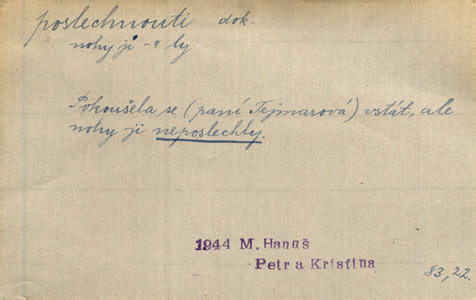 poslechnouti dok.
nohy ji -" ly
Pokoušela se (paní Tejmarová) vstát, ale
nohy ji neposlechly.
1944 M. Hanuš
Petr a Kristina
83,22.